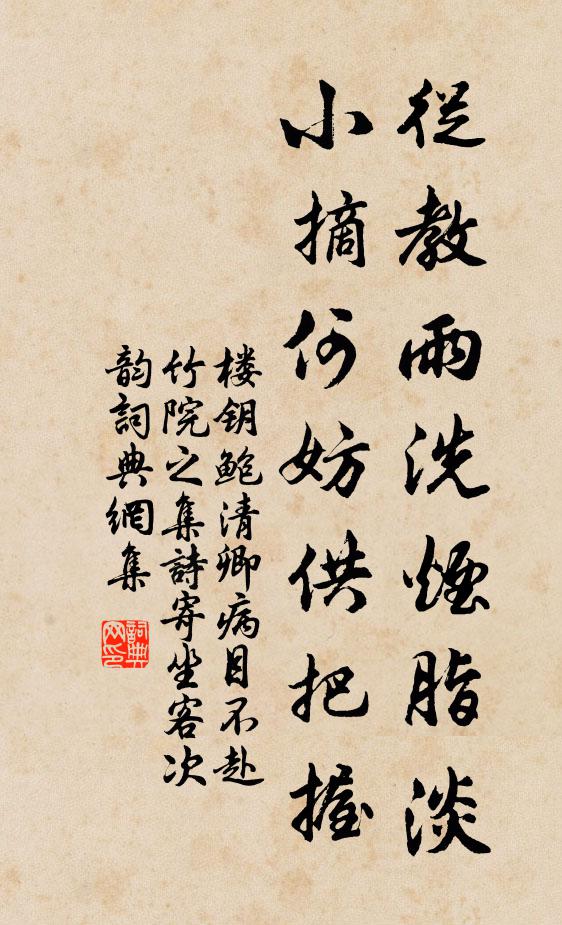 從教雨洗煙脂淡
小摘何妨供把握
楼钥鲍清卿病目不赴
竹院之集詩寄坐客次
韵詞典網集
詞典
网印